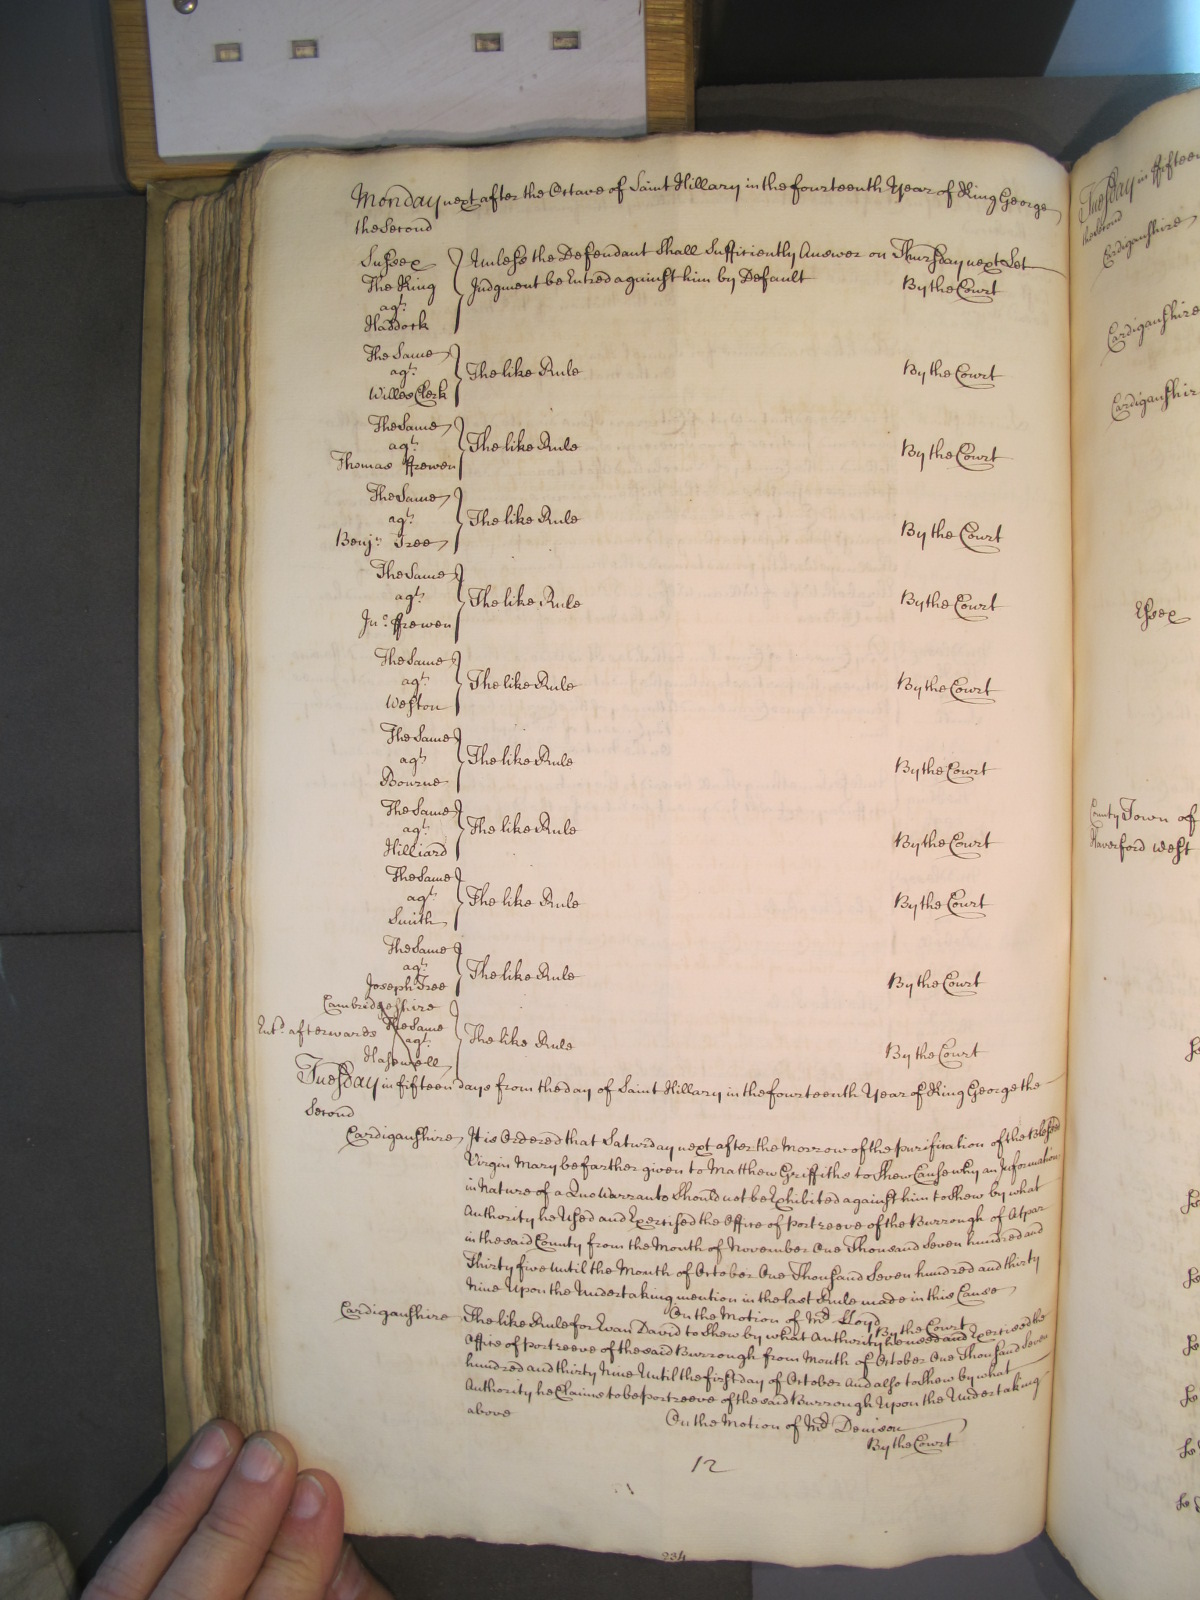 Monday next after the Octave of Saint Hillary in the fourteenth Year of King George
the Second
Sussex Unless the Defendant Shall Sufficiently Answer on Thursday next Let
The King Judgment be Entred against him by Default By the Court
agt
Haddock
The Same
agt The like Rule By the Court
Willes Clerk
The Same
agt The like Rule By the Court
Thomas ffrewen
The Same
agt The like Rule By the Court
Benjn Tree
The Same
agt The like Rule By the Court
Jno ffrewen
The Same
agt The like Rule By the Court
Weston
The Same
agt The like Rule By the Court
Bourne
The Same
agt The like Rule By the Court
Hilliard
The Same
agt The like Rule By the Court
Smith
The Same
agt The like Rule By the Court
Joseph Tree
Cambridgeshire
Entd afterwards The Same
agt The like Rule By the Court
Hasewell
Tuesday in fifteen days from the day of Saint Hillary in the fourteenth Year of King George the
Second
Cardiganshire It is Ordered that Saturday next after the Morrow of the purification of the Blessed
Virgin Mary be farther given to Matthew Griffiths to Shew Cause why an Information
in Nature of a Quo Warranto Should not be Exhibited against him to Shew by what
Authority he Used and Exercised the Office of portreeve of the Burrough of Atpar
in the said County from the Month of November One Thousand Seven hundred and
Thirty five Until the Month of October One Thousand Seven hundred and thirty
Nine Upon the Undertaking mention in the last Rule made in this Cause
On the Motion of Mr Lloyd
By the Court
Cardiganshire The like Rule for Evan David to Shew by what Authority he used and Exercised the
Office of portreeve of the said Burrough from Month of October One Thousand Seven
hundred and thirty Nine Until the first day of October and also to Shew by what
Authority he Claims to be portreeve of the said Burrough Upon the Undertaking
above
On the Motion of Mr Denison
By the Court
12
234
Tuesday in fifteen
the Second
Cardiganshire
Cardiganshire
Cardiganshir
Essex
County Town of
Haverford West